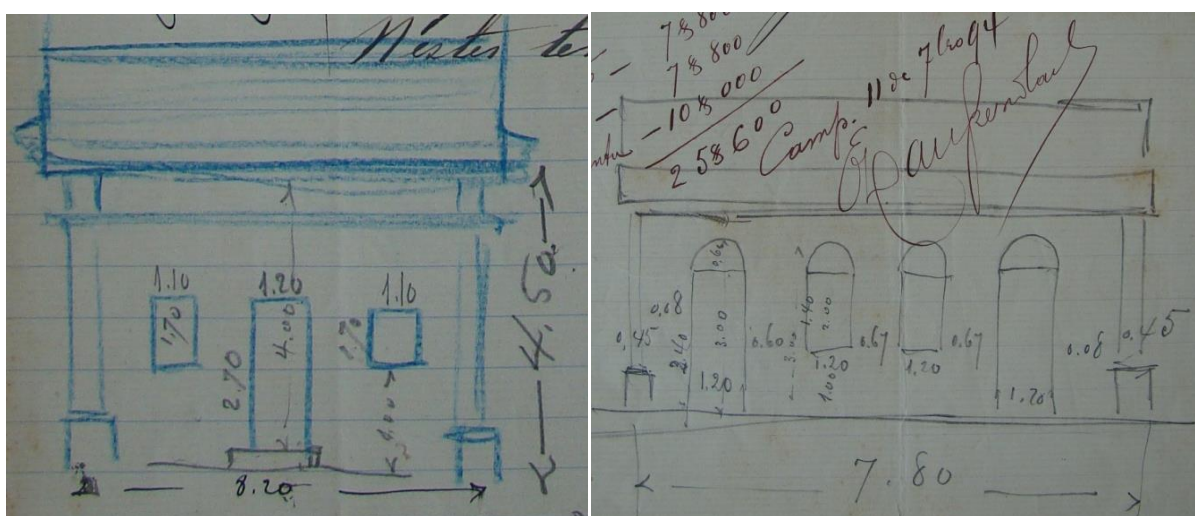 Nestes te
1.10
1.20
1.10
1.70
4.00
1.70
2.70
1.00
4,50
8.20
78800
78800
108000
258600
Camp. 11 de 7bro 94
0.60
0,08
0,45
2.40
3.00
0.60
1.20
1.40
2.00
1.20
1.00
0.67
1.20
0.67
0.08
0.45
1.20
7.80